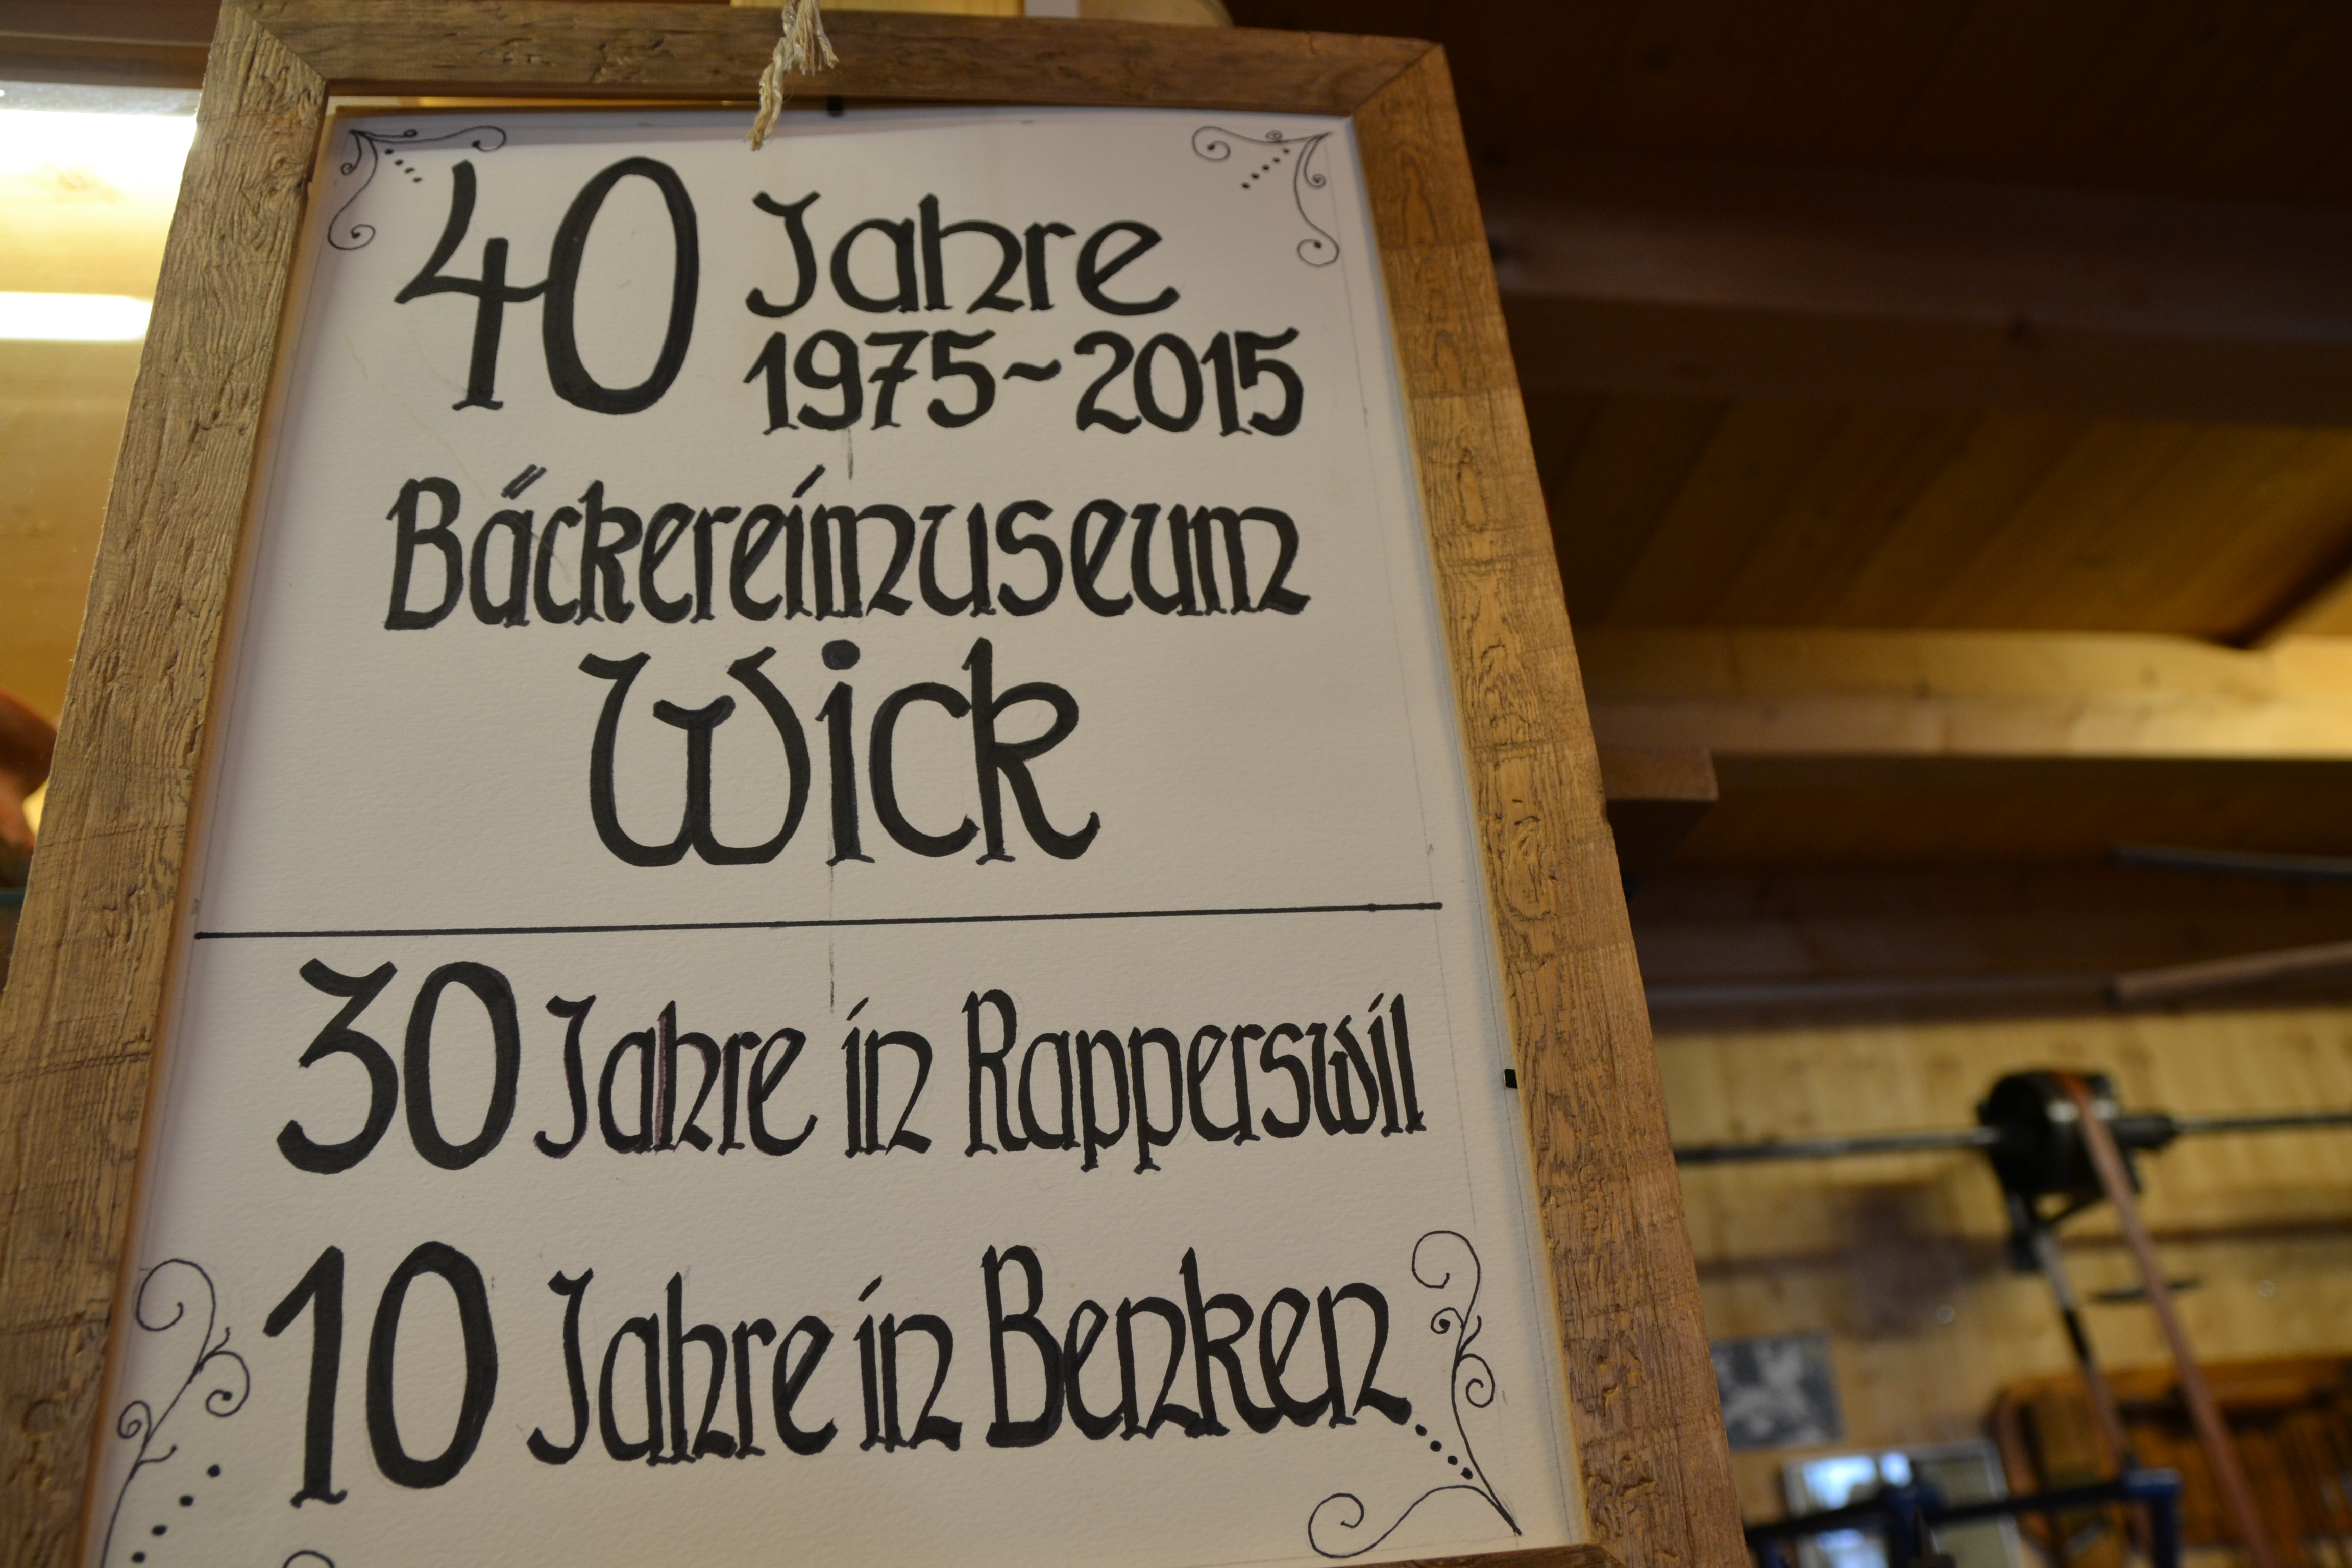 40 Jahre
1975~2015
Bäckereimuseum
Wick
30 Jahre in Rapperswil
10 Jahre in Benken